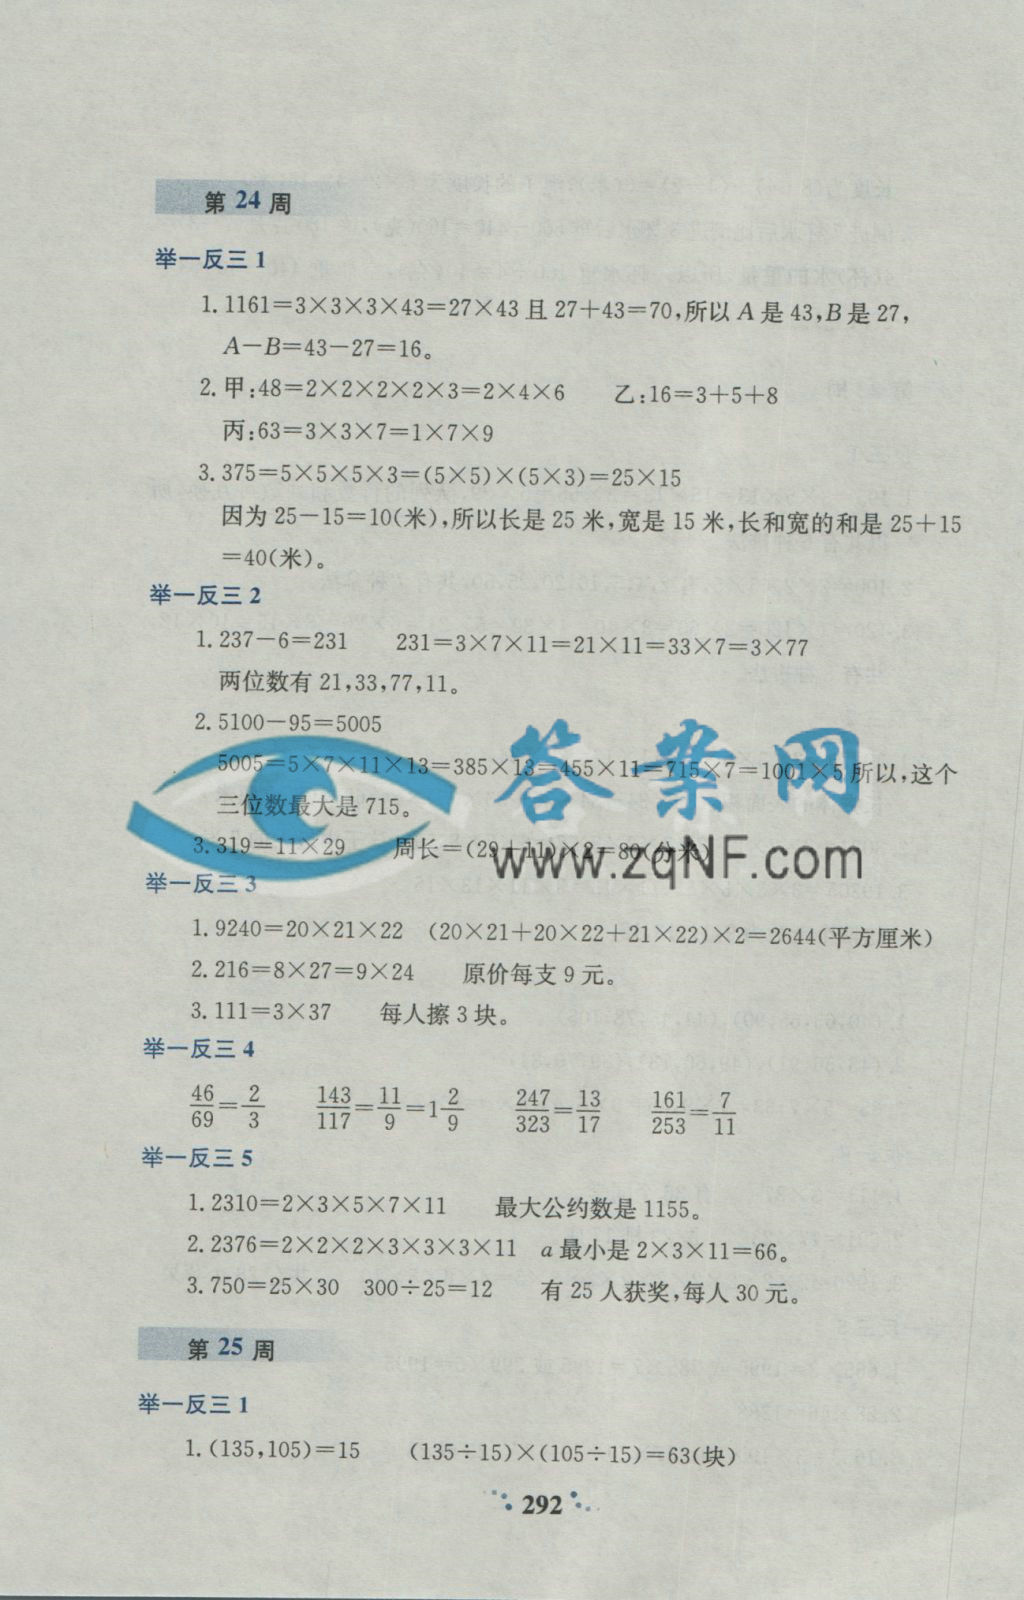 第 24 周
举一反三 1
1. 1161=3×3×3×43=27×43 且 27+43=70,所以 A 是 43,B 是 27,
A-B=43-27=16。
2. 甲:48=2×2×2×2×3=2×4×6 乙:16=3+5+8
丙:63=3×3×7=1×7×9
3. 375=5×5×5×3=(5×5)×(5×3)=25×15
因为 25-15=10(米),所以长是 25 米,宽是 15 米,长和宽的和是 25+15
=40(米)。
举一反三 2
1. 237-6=231 231=3×7×11=21×11=33×7=3×77
两位数有 21,33,77,11。
2. 5100-95=5005
5005=5×7×11×13=385×13=455×11=715×7=1001×5 所以,这个
三位数最大是 715。
3. 319=11×29 周长=(29+11)×2=80(分米)
答案网
www.zqNF.com
举一反三 3
1. 9240=20×21×22 (20×21+20×22+21×22)×2=2644(平方厘米)
2. 216=8×27=9×24 原价每支 9 元。
3. 111=3×37 每人擦 3 块。
举一反三 4
46/69=2/3 143/117=11/9=1 2/9 247/323=13/17 161/253=7/11
举一反三 5
1. 2310=2×3×5×7×11 最大公约数是 1155。
2. 2376=2×2×2×3×3×3×11 a 最小是 2×3×11=66。
3. 750=25×30 300÷25=12 有 25 人获奖,每人 30 元。
第 25 周
举一反三 1
1. (135,105)=15 (135÷15)×(105÷15)=63(块)
292